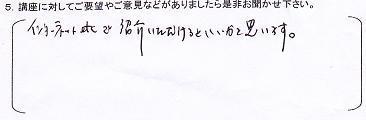 5. 講座に対してご要望やご意見などがありましたら是非お聞かせ下さい。
インターネットetcで紹介いただけるといいかと思います。